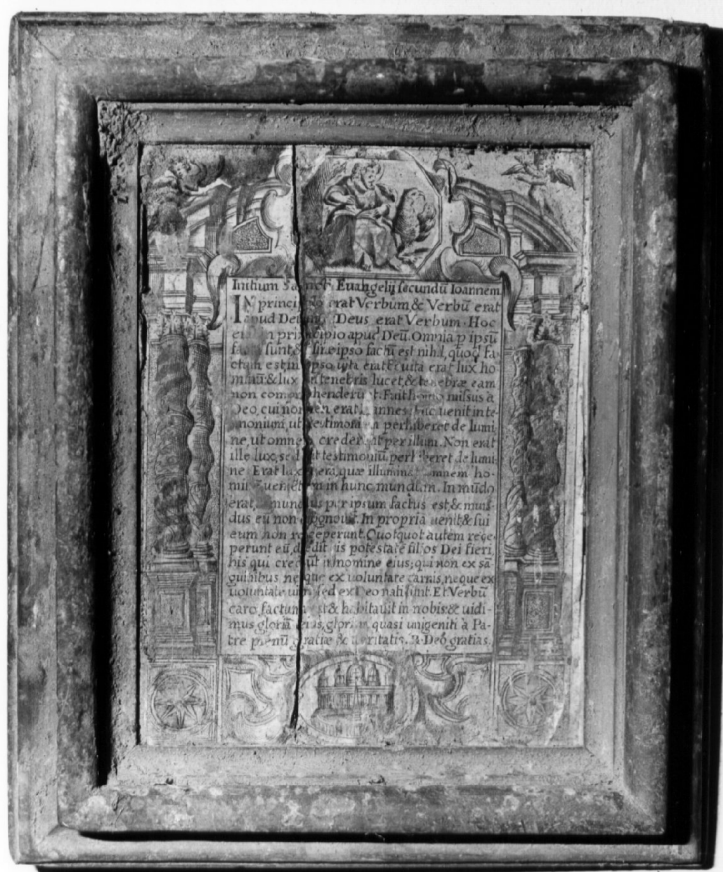 Initium Evangelij secundũ Ioannem
IN principio erat Verbum & Verbũ erat
apud Deum Deus erat Verbum. Hoc
in principio apud Deũ. Omnia p ipsũ
facta sunt & sine ipso factũ est nihil, quod fa-
ctum est in ipso vita erat & vita erat lux ho-
minũ: & lux in tenebris lucet, & tenebræ eam
non comprehenderũt. Fuit homo missus a
Deo, cui nomen erat Ioannes. Hic uenit in te-
monium, ut testimoniũ perhiberet de lumi
ne, ut omnes crederent per illum. Non erat
ille lux, sed ut testimoniũ perhiberet de lumi-
ne. Erat lux uera, quæ illuminat omnem ho-
minẽ uenientem in hunc mundum. In mũdo
erat, & mundus per ipsum factus est & mun-
dus eũ non cognouit. In propria uenit, & sui
eum non receperunt. Quotquot autem rece-
perunt eũ, dedit eis potestatẽ filios Dei fieri
his qui credũt in nomine eius; qui non ex sã
guinibus, neque ex uoluntate carnis, neque ex
uoluntate uiri, sed ex Deo nati sunt. Et Verbũ
caro factum est & habitauit in nobis & uidi-
mus gloriã eius, gloriam quasi unigeniti à Pa-
tre plenũ gratiæ & ueritatis. Deo gratias.